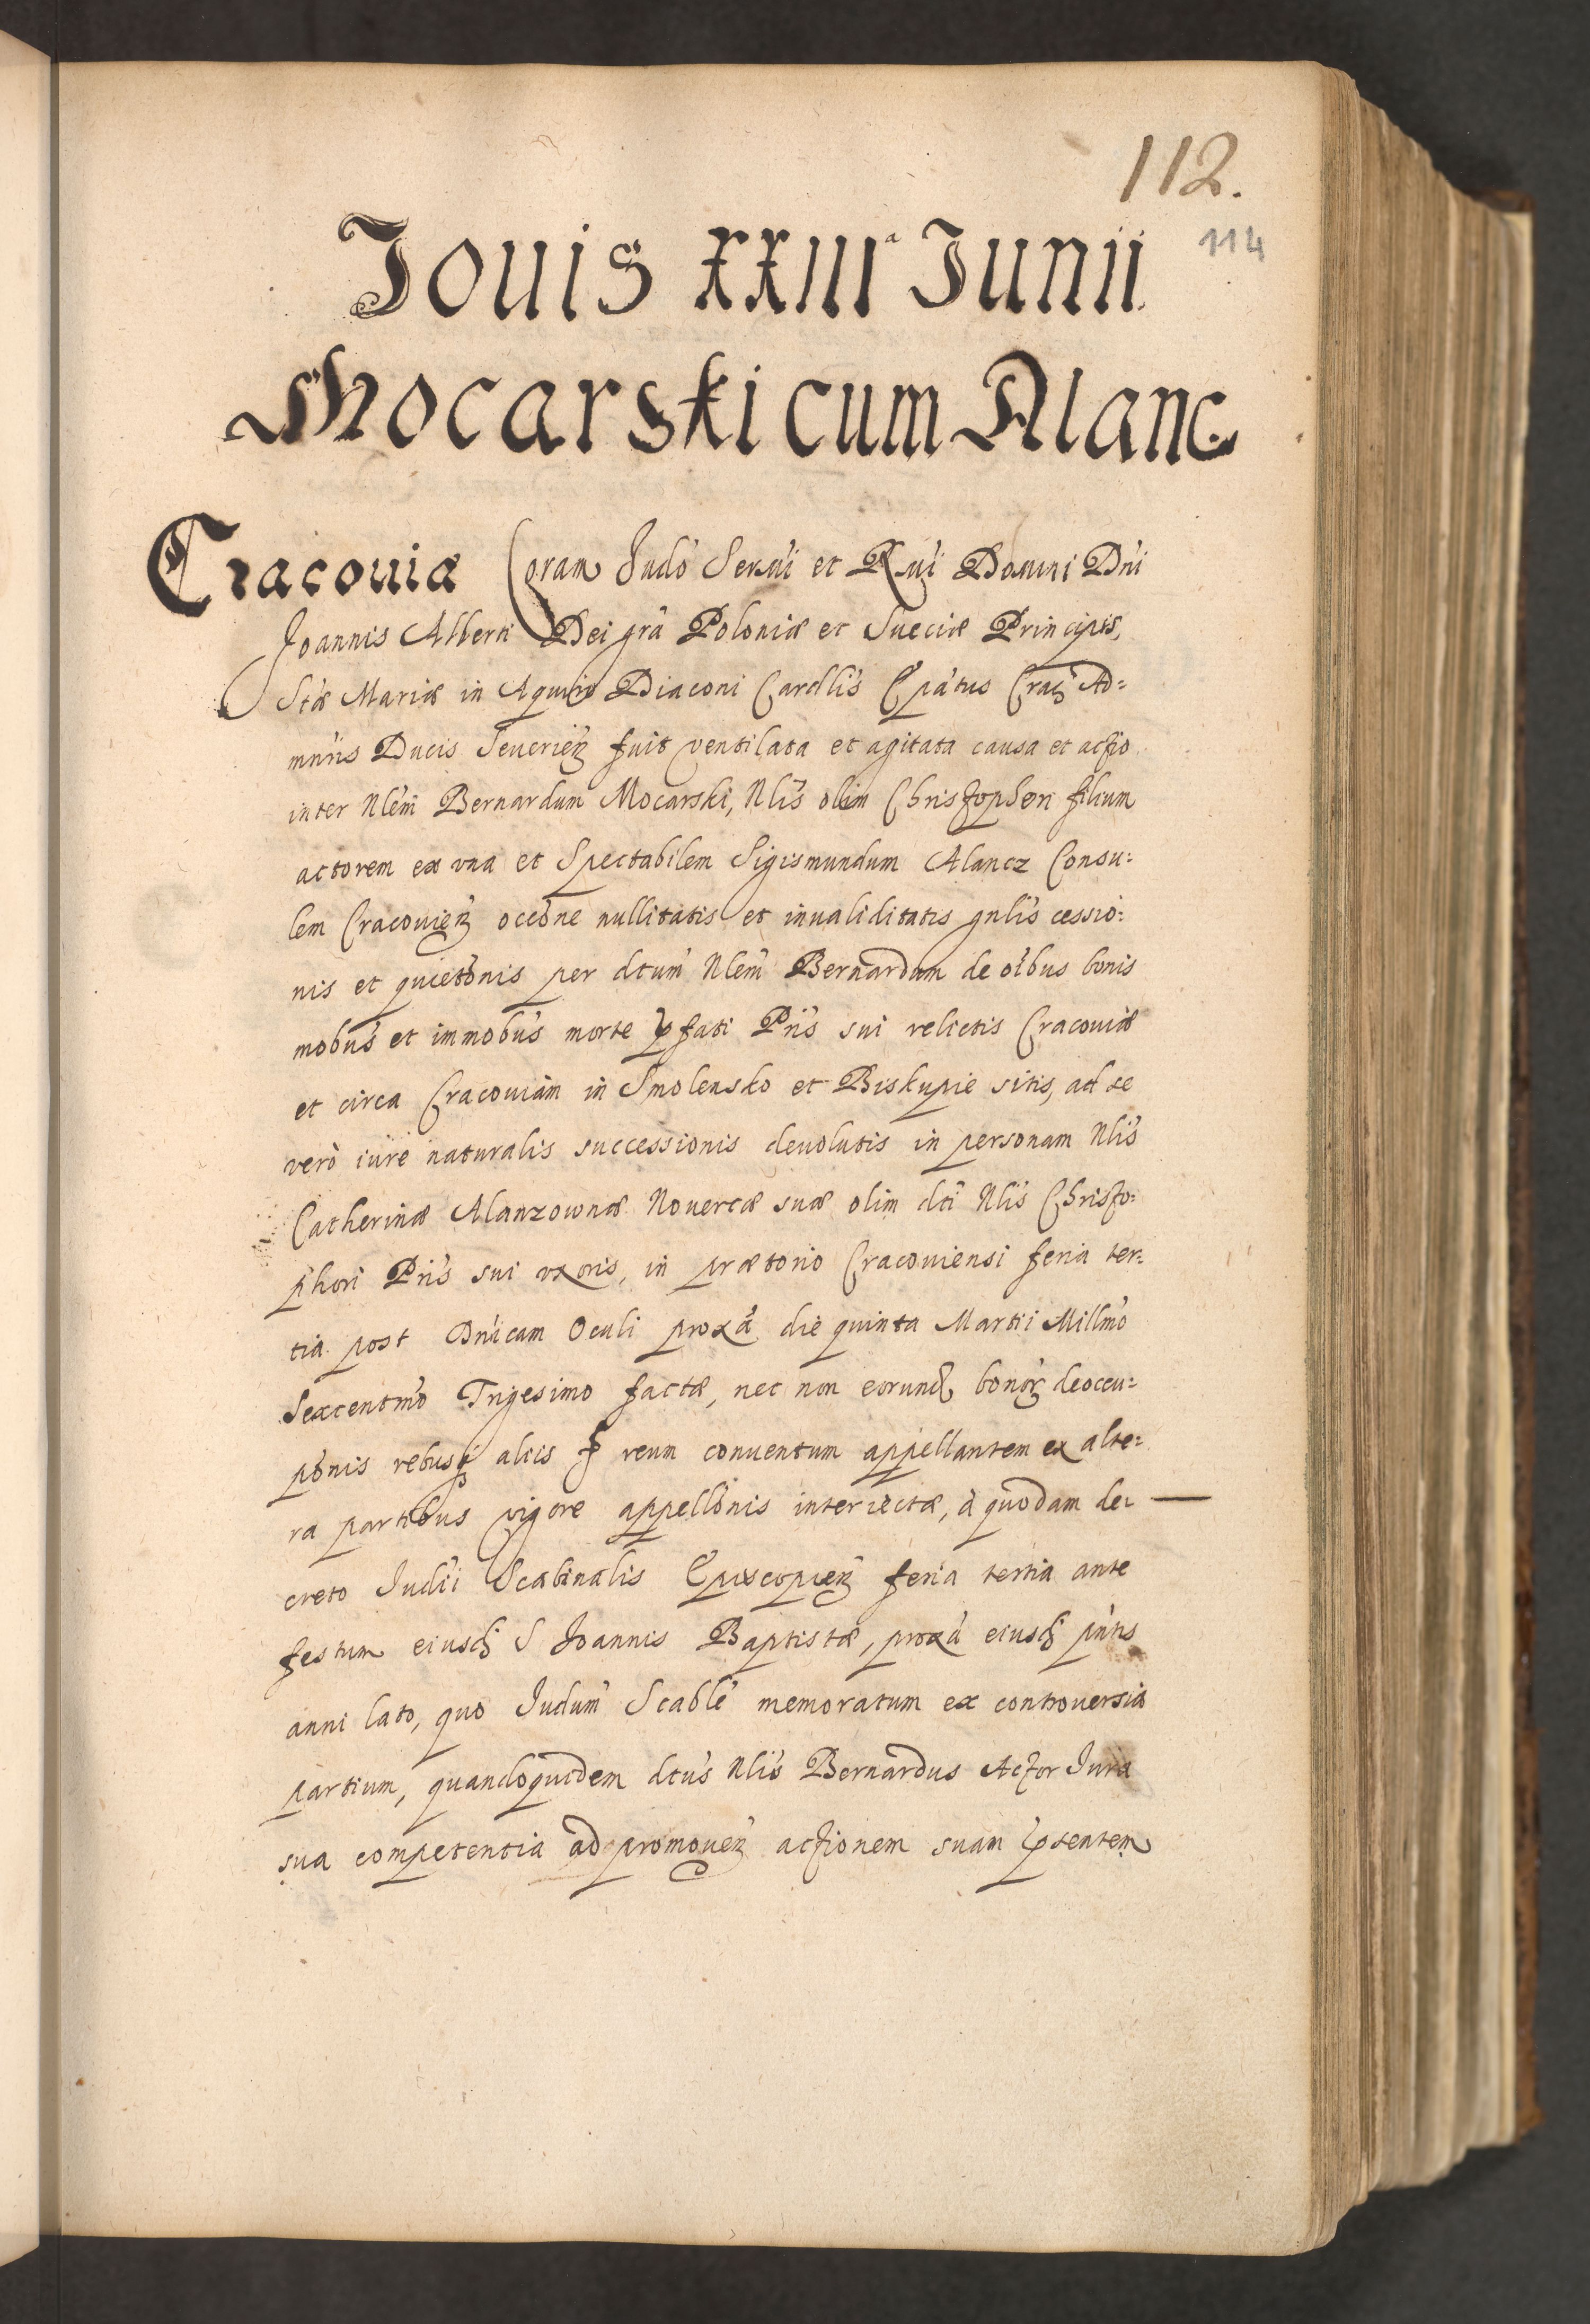 112.
114
Iouis XXIIIa Iunii
Mocarski cum Alanc
Cracouiæ Coram Judo Sersmi et Rsmi Domini Dni
Joannis Alberti Dei gra Poloniæ et Sueciæ Principis,
Stæ Mariæ in Aquiro Diaconi Cardlis Epatus Crac Ad=
mnris Ducis Seuerien fuit ventilata et agitata causa et actio
inter Nlem Bernardum Mocarski, Nlis olim Christopheri filium
actorem ex vna et Spectabilem Sigismundum Alancz Consu=
lem Cracouien occone nullitatis et inualiditatis gnlis cessio=
nis et quietonis per dtum Nlem Bernardum de oibus bonis
mobus et immobus morte pfati Pris sui relictis Cracouiæ
et circa Cracouiam in Smolensko et Biskupie sitis, ad se
verò iure naturalis successionis deuolutis in personam Nlis
Catherinæ Alanzownæ Nouercæ suæ olim dti Nlis Christo=
phori Pris sui vxoris, in prætorio Cracouiensi feria ter=
tia post Dnicam Oculi proxa die quinta Martii Millmo
Sexcentmo Trigesimo factæ, nec non eorund bonor deoccu=
ponis rebusq aliis reum conuentum appellantem ex alte=
ra partibus vigore appellonis interiectæ, à quodam de=
creto Judii Scabinalis Episcopien feria tertia ante
festum eiusd S Joannis Baptistæ, proxa eiusd pntis
anni lato, quo Judum Scable memoratum ex controuersia
partium, quandoquidem dtus Nlis Bernardus Actor Jura
sua competentia ad promouen actionem suam pseatem